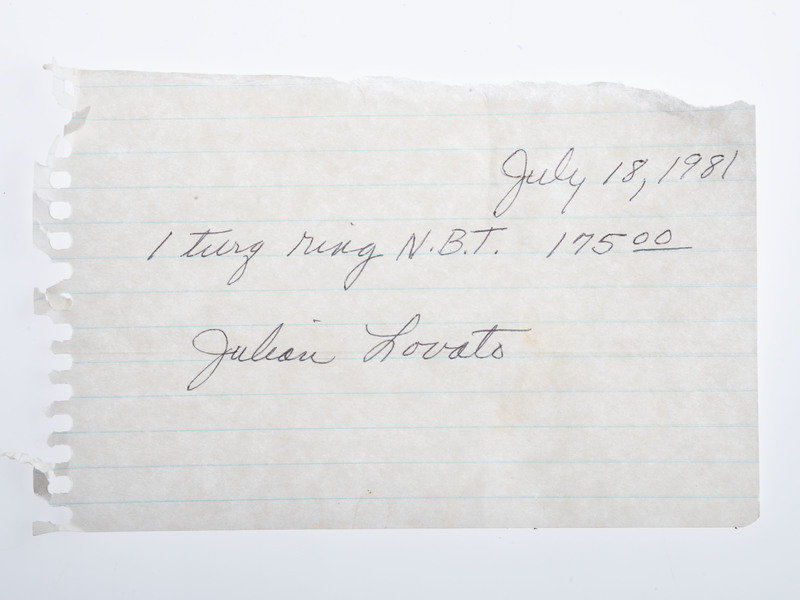 July 18, 1981
1 turq ring N.B.T. 175 00
Julian Lovato